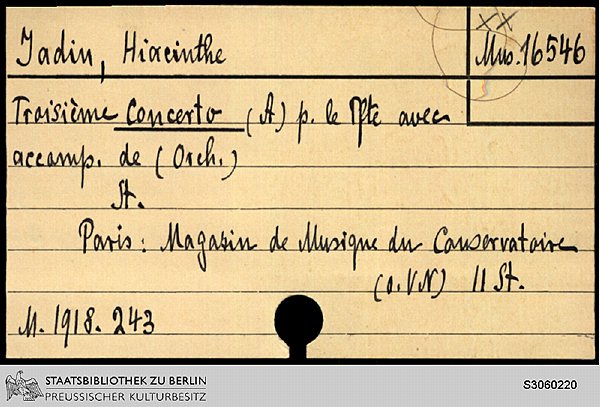 Jadin, Hiacinthe
XX
Mus. 16546
Troisième Concerto (A) p. le Pfte avec
accomp. de (Orch.)
St.
Paris: Magasin de Musique du Conservatoire
(o. VN) 11 St.
M. 1918. 243
STAATSBIBLIOTHEK ZU BERLIN
PREUSSISCHER KULTURBESITZ
S3060220